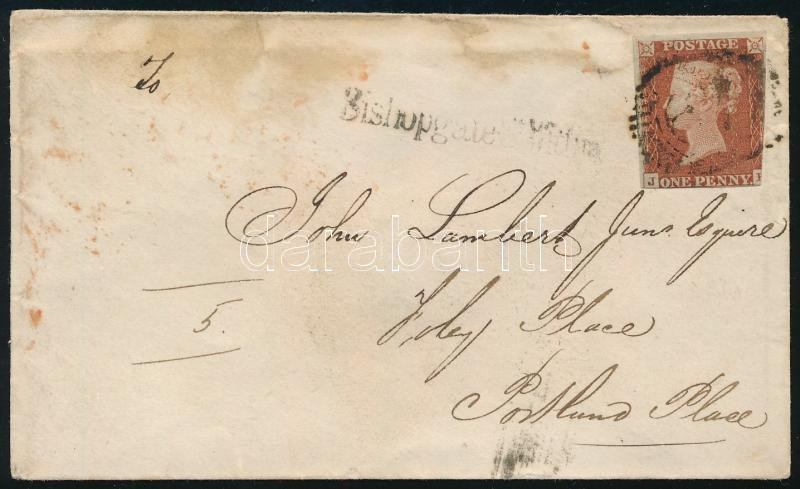 To
POSTAGE
Bishopgate Within
J
ONE PENNY.
John Lambert Junr Esquire
darabanth
5.
Foley Place
Portland Place